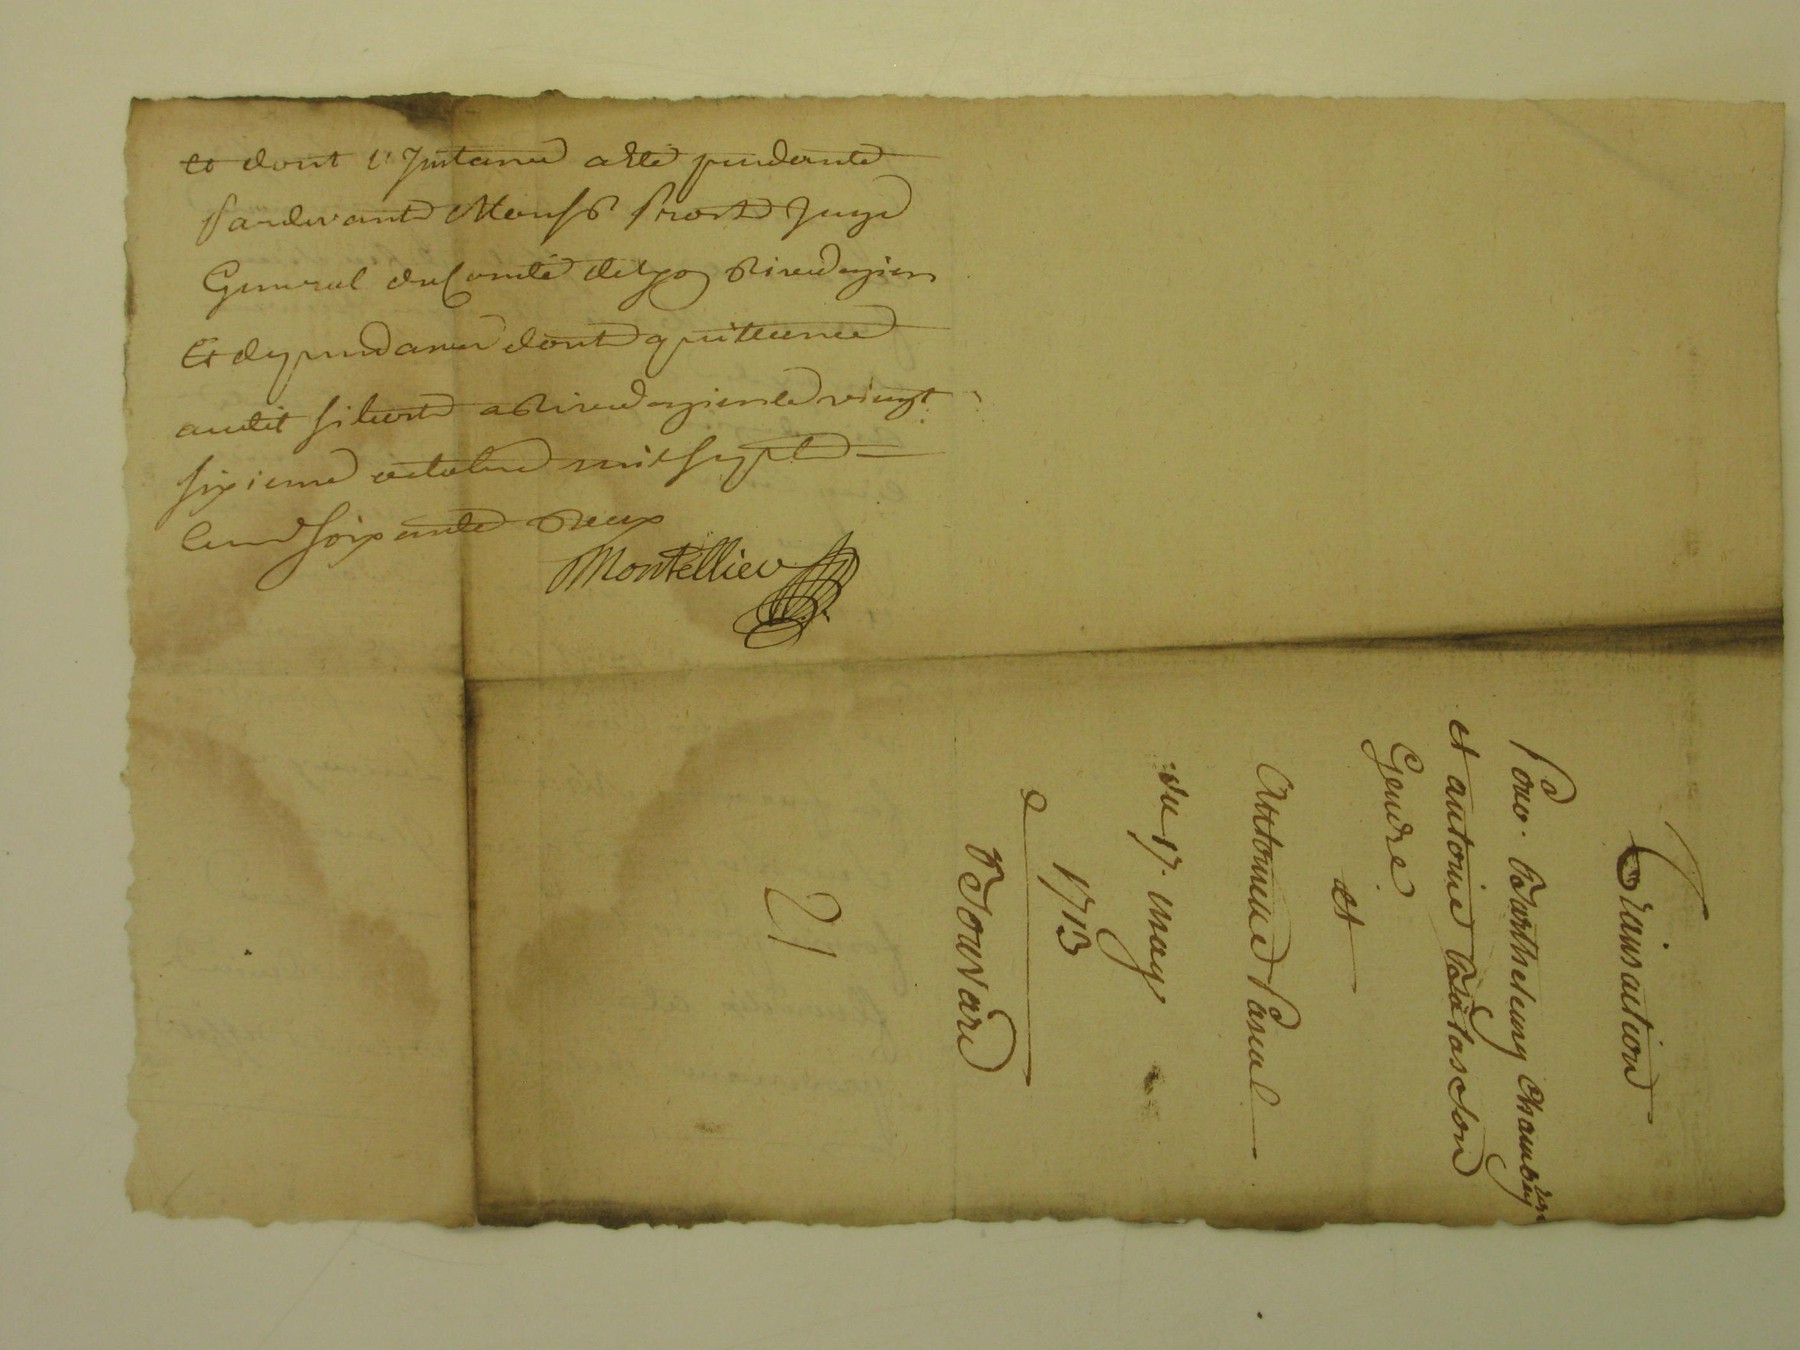 et dont l'Instance a Eté pendante
Pardevant Mons.r prost Juge
General du Comté de Rivedegier
Et dependances dont quittance
audit Rivedegier le vingt
sixieme octobre mil sept
Cent soixante deux
Montellier
Transaction
Pour Barthelemy Chambeyron
et antoine son
Gendre
et
Anthoine Pascal
du 17 may
1713
Jouvard
21